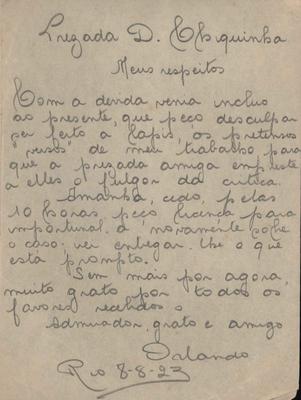 Prezada D. Chiquinha
Meus respeitos
Com a devida venia incluo
ao presente, que peço desculpar
ser feito a lapis, os pretensos
"versos" de meu trabalho para
que a prezada amiga empreste
a elles o fulgor da critica.
Amanhã, cedo, pelas
10 horas peço licença para
importunal-a novamente
o caso: vou entregar-lhe o que
está prompto.
Sem mais por agora,
muito grato por todos os
favores recebidos o
admirador, grato e amigo
Orlando
Rio 8-8-23